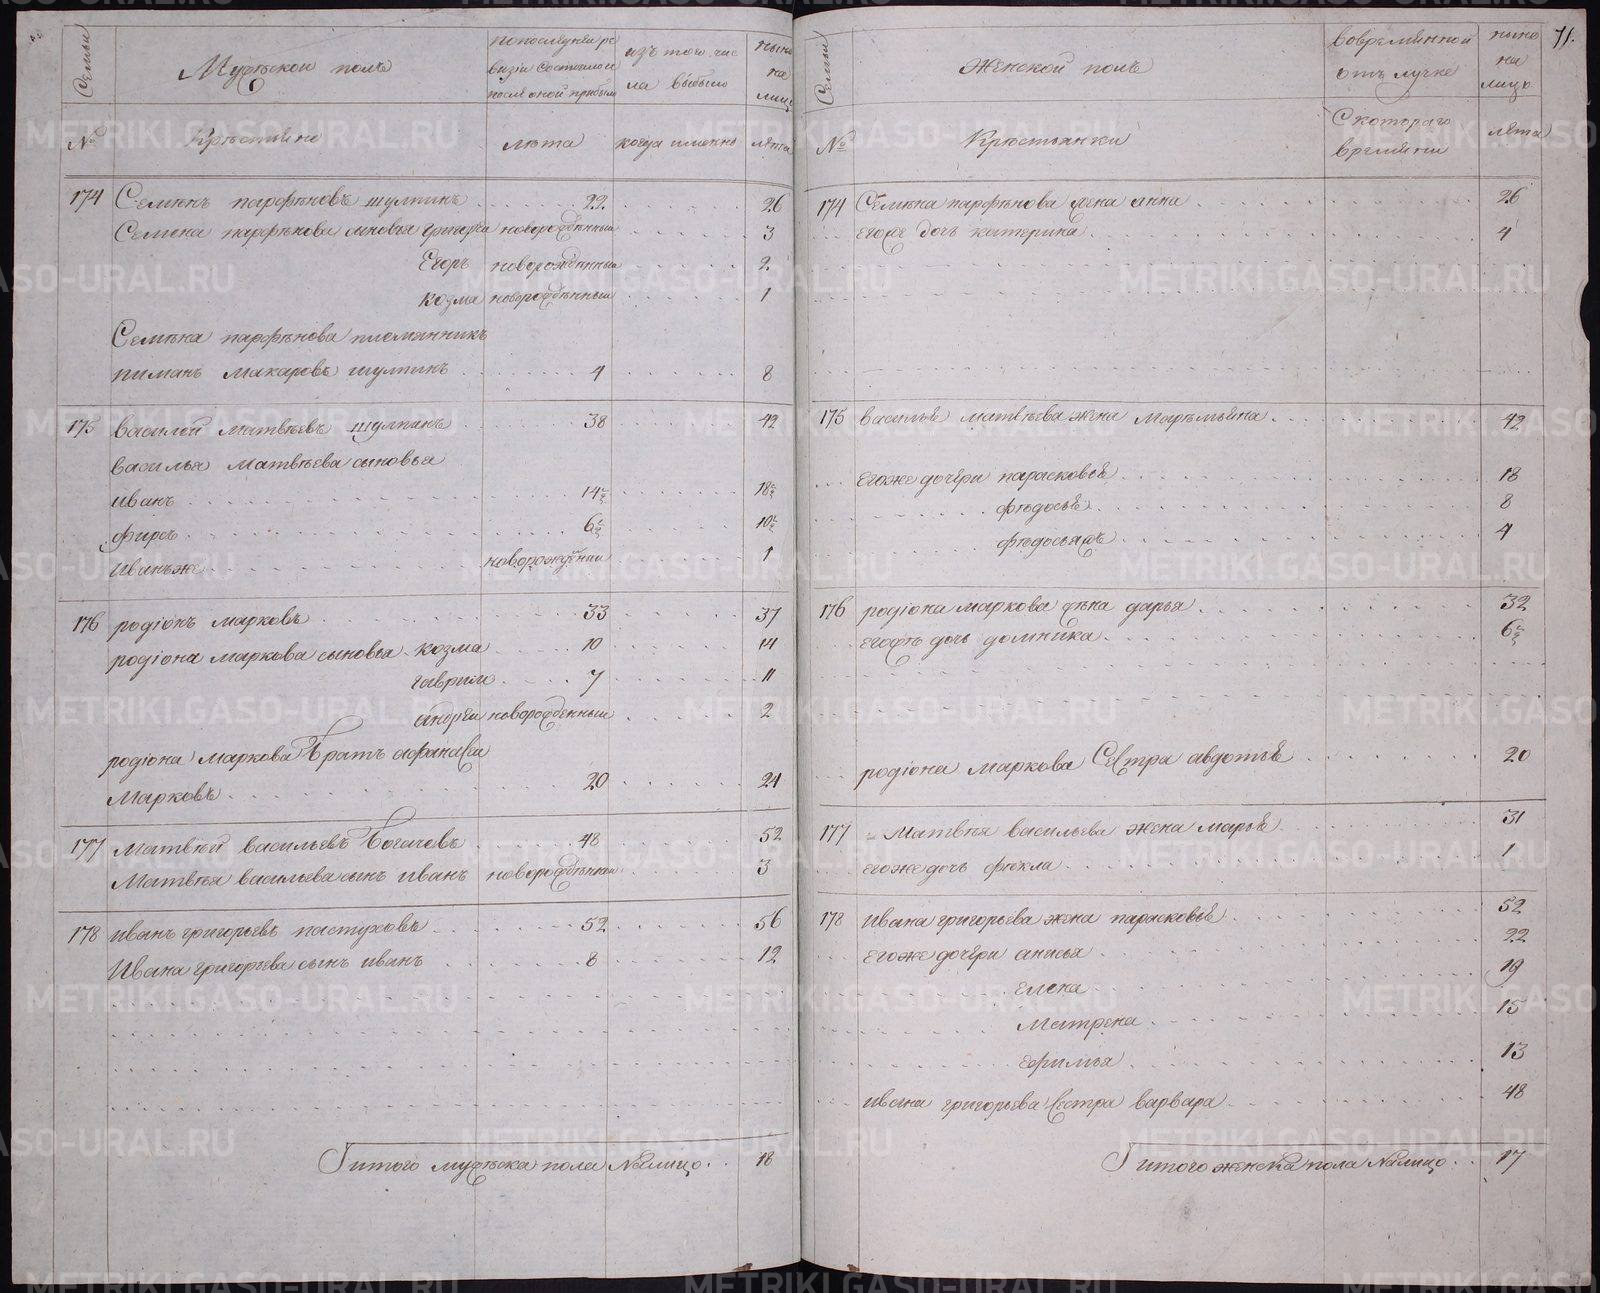 Семьи
Мужескои полъ
попоследнеи ре
визiи состояло и
после оной прибыло
изъ того чис
ла выбыло
ныне
на
лицо
№
Крестьяне
лета
когда именно
лета
174 Семенъ парфеновъ шулпинъ 22 26
Семена парфенова сыновья григореи новорожденныи 3
Егоръ новорожденныи 2
козма новорожденныи 1
Семена парфенова племянникъ
пиманъ макаровъ шулпинъ 4 8
175 василеи матвеевъ шулпинъ 38 42
василья матвеева сыновья
иванъ 14 1/2 18 1/2
фирсъ 6 1/2 10 1/2
иванъже новорожденныи 1
176 родiонъ марковъ 33 37
родiона маркова сыновья козма 10 14
гаврило 7 11
андреи новорожденныи 2
родiона маркова братъ афанасеи
марковъ 20 24
177 матвеи васильевъ богачевъ 48 52
Матвея васильева сынъ иванъ новорожденныи 3
178 иванъ григорьевъ пастуховъ 52 56
Ивана григорьева сынъ иванъ 8 12
Итого мужеска пола налицо 18
71.
Семьи
Женской полъ
вовременной
отлучке
ныне
на
лицо
№
Крестьянки
Скотораго
времяни
лета
174 Семена парфенова жена анна 26
егоже дочь катерина 4
175 василья матвеева жена маремьяна 42
егоже дочери парасковья 18
федосья 8
федосьяжъ 4
176 родiона маркова жена дарья 32
егожъ дочь домника 6 1/2
родiона маркова Сестра авдотья 20
177 Матвея васильева жена марья 31
егоже дочь фекла 1
178 ивана григорьева жена парасковья 52
егоже дочери анисья 22
елена 19
Матрена 15
ефимья 13
ивана григорьева Сестра варвара 48
Итого женска пола налицо 17
METRIKI.GASO-URAL.RU